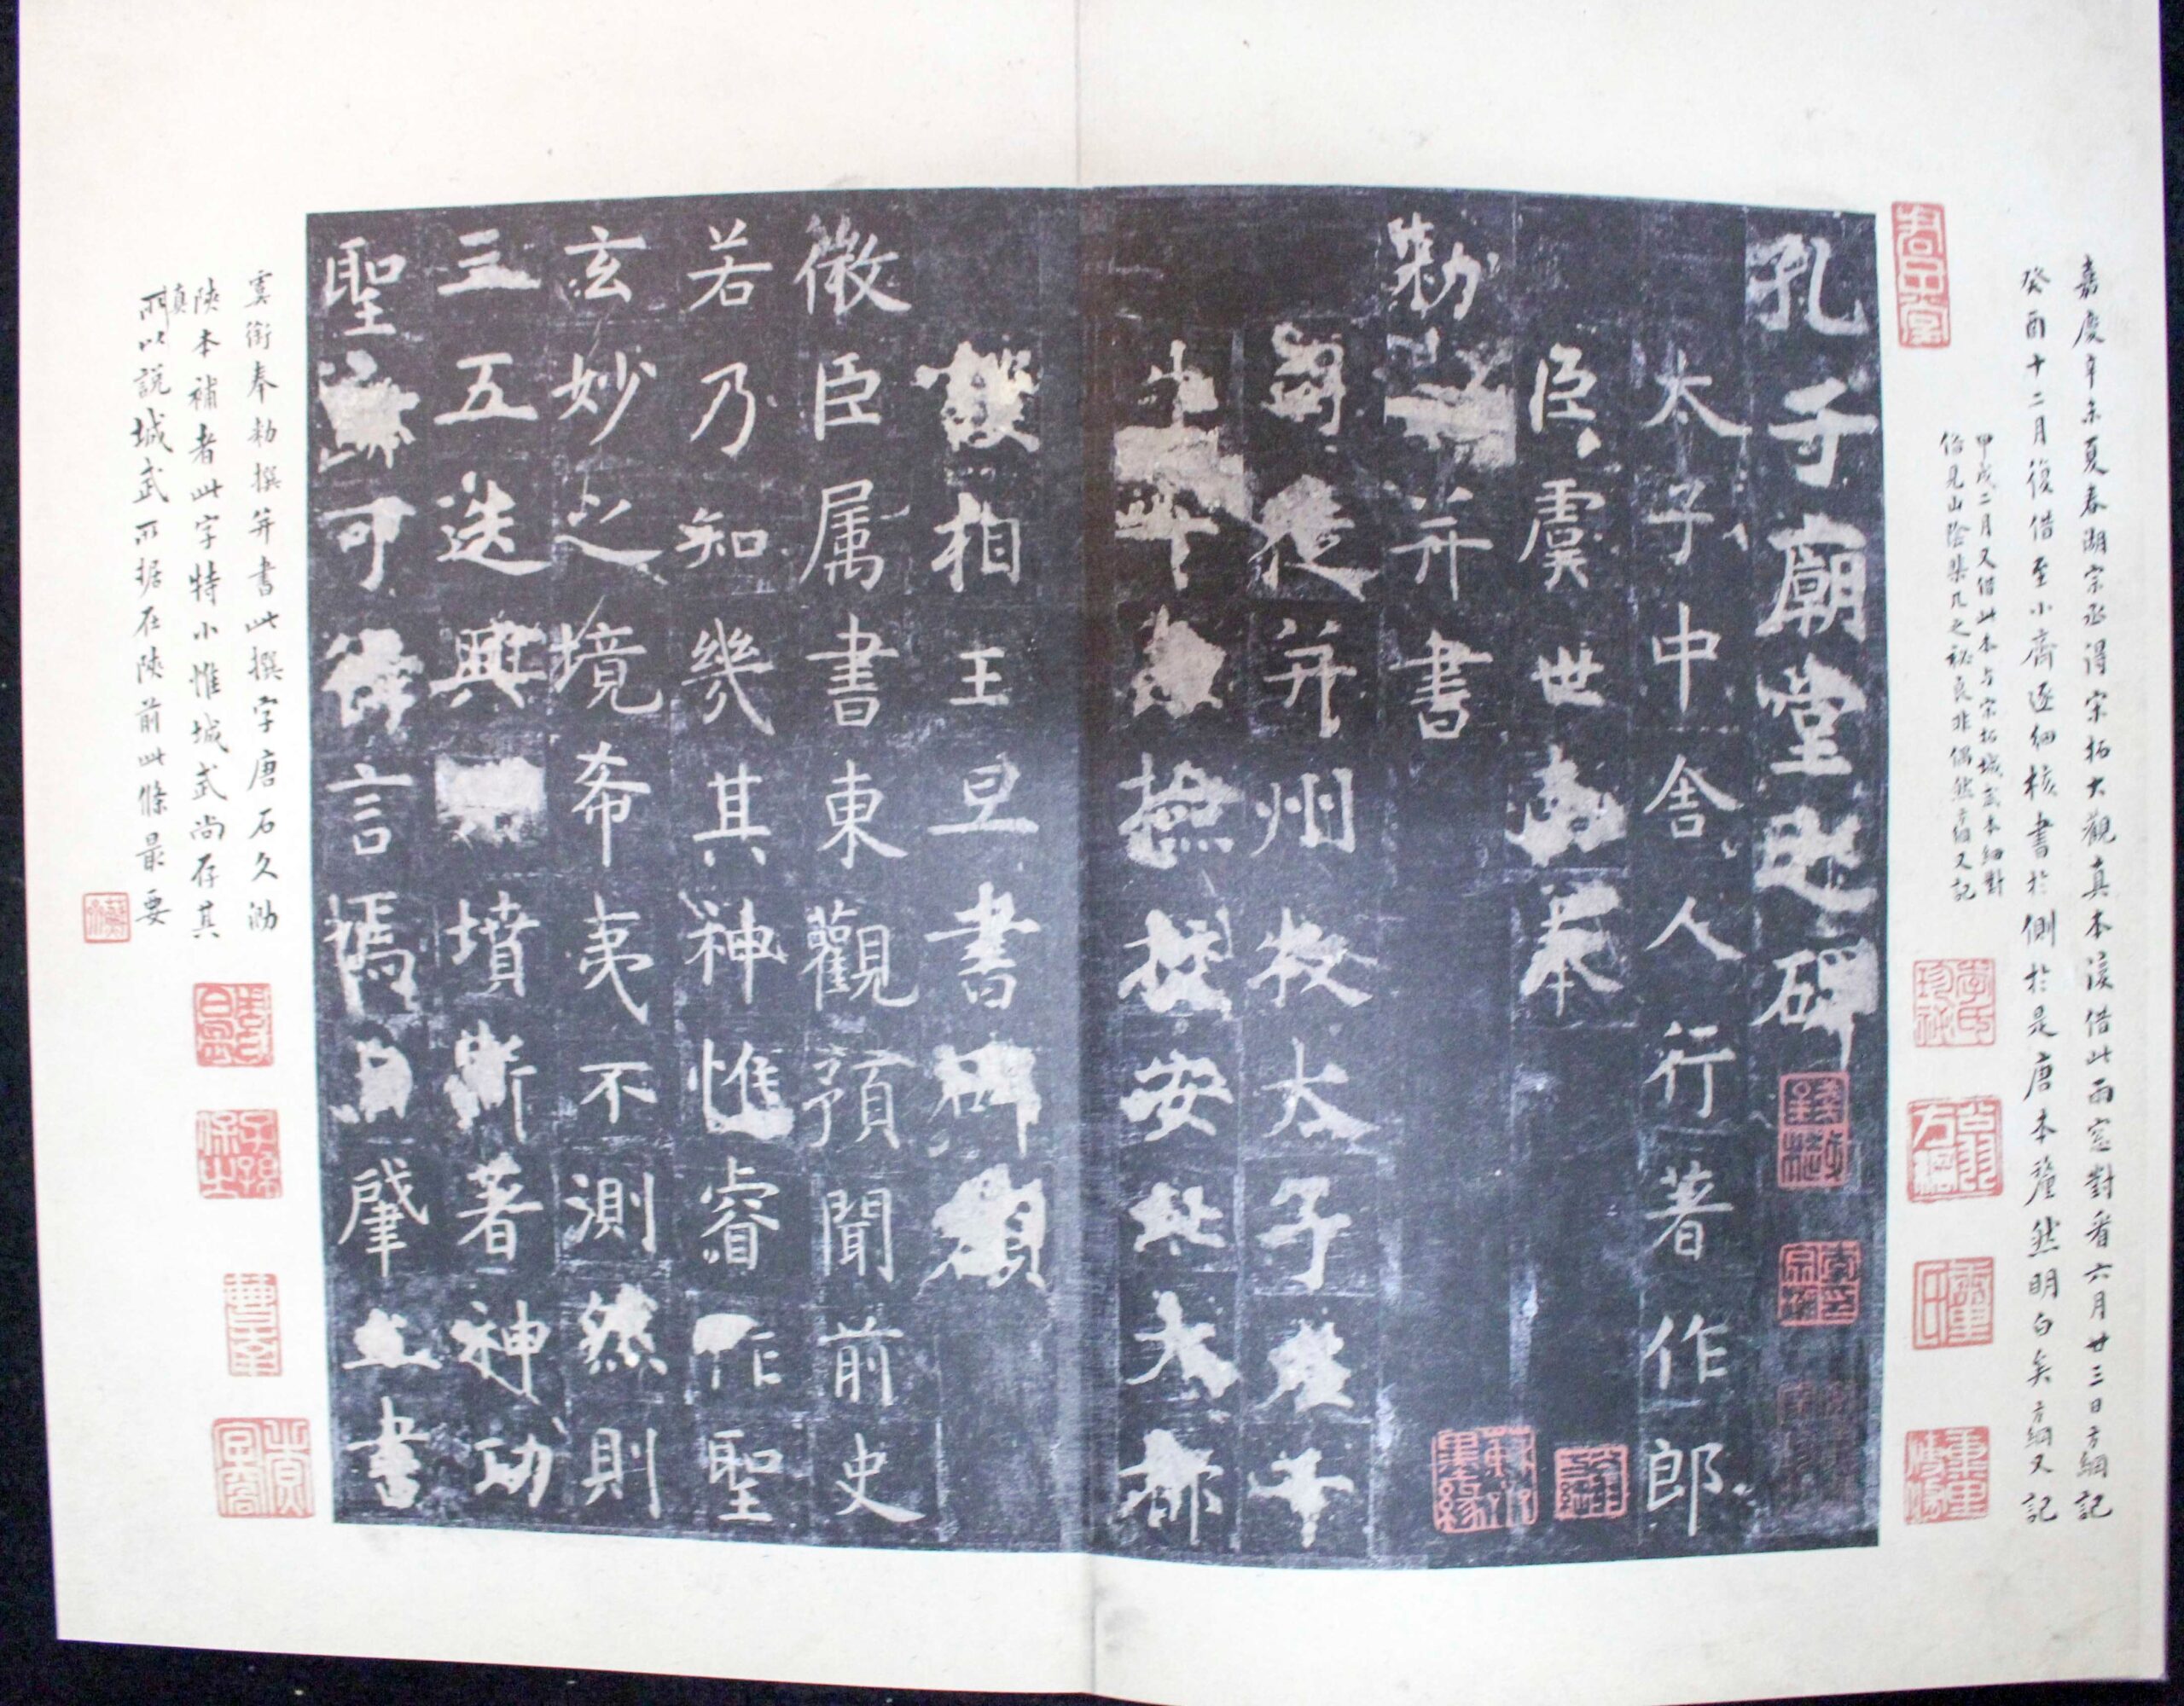 嘉慶辛未夏春湖宗丞得宋拓大觀真本湲借此兩宝對看六月廿三日方綱記
癸酉十二月復借至小齋逐細核書於側於是唐本釐然明白矣方綱又記
甲戌二月又借此本与宋拓城武本細對
信見山陰棐几之秘良非偶然方綱又記
孔子廟堂之碑
太子中舍人行著作郎
臣虞世南奉
勑 并書
司徒并州牧太子左千
牛 率兼 撫按安北大都
護相王旦書碑額
微臣属書東觀預聞前史
若乃知幾其神惟睿作聖
玄妙之境希夷不測然則
三五迭興 墳斯著神功
聖迹可得言焉自肇立書
虞銜奉勑撰并書此撰字唐石久泐
陝本補者此字特小惟城武尚存其真
所以說城武所据在陝前此條最要